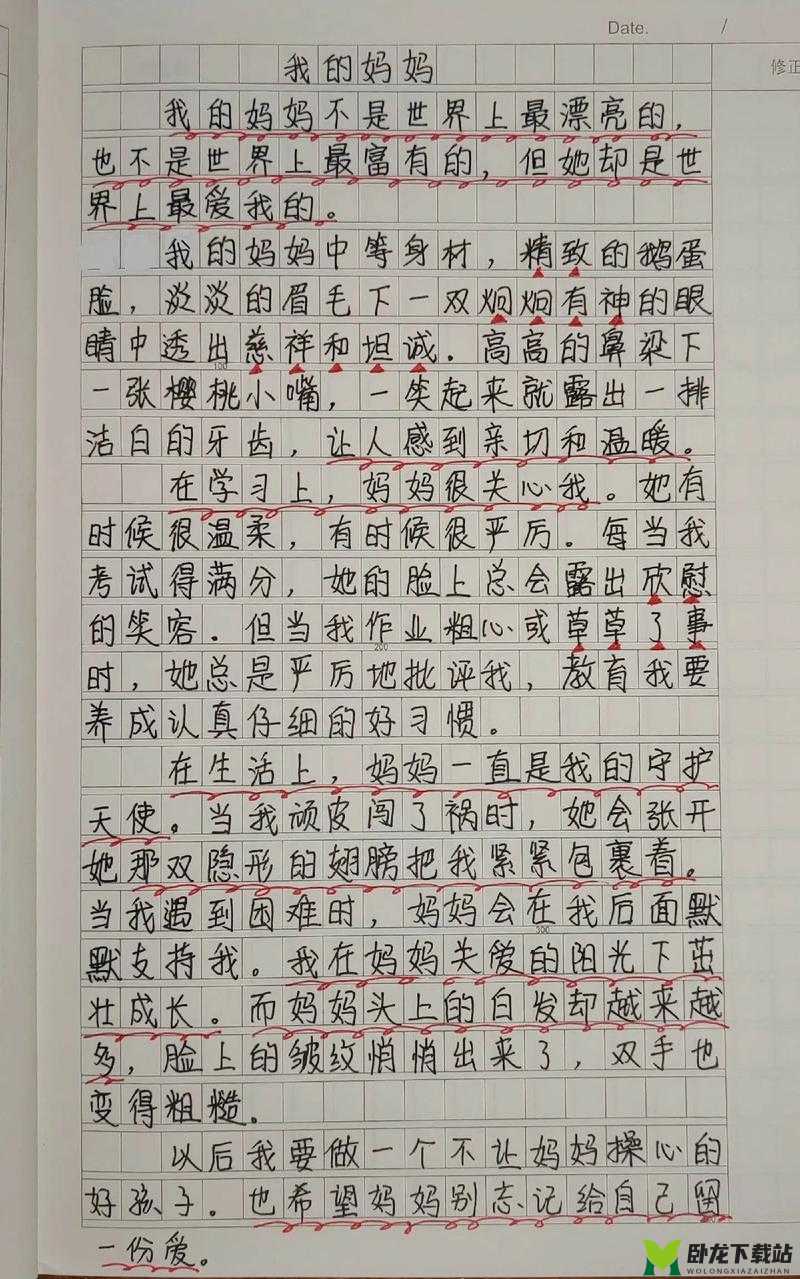 Date.       /
修正
我的妈妈
我的妈妈不是世界上最漂亮的，
也不是世界上最富有的，但她却是世
界上最爱我的。
我的妈妈中等身材，精致的鹅蛋
脸，淡淡的眉毛下一双炯炯有神的眼
睛中透出慈祥和坦诚．高高的鼻梁下
100
一张樱桃小嘴，一笑起来就露出一排
洁白的牙齿，让人感到亲切和温暖。
在学习上，妈妈很关心我。她有
时候很温柔，有时候很严厉．每当我
考试得满分，她的脸上总会露出欣慰
的笑容．但当我作业粗心或草草了事
200
时，她总是严厉地批评我，教育我要
养成认真仔细的好习惯。
在生活上，妈妈一直是我的守护
天使。当我顽皮闯了祸时，她会张开
她那双隐形的翅膀把我紧紧包裹着。
当我遇到困难时，妈妈会在我后面默
300
默支持我。我在妈妈关爱的阳光下茁
壮成长．而妈妈头上的白发却越来越
多，脸上的皱纹悄悄出来了，双手也
变得粗糙。
以后我要做一个不让妈妈操心的
好孩子．也希望妈妈别忘记给自己留
一份爱。
卧龙下载站
WOLONGXIAZAIZHAN